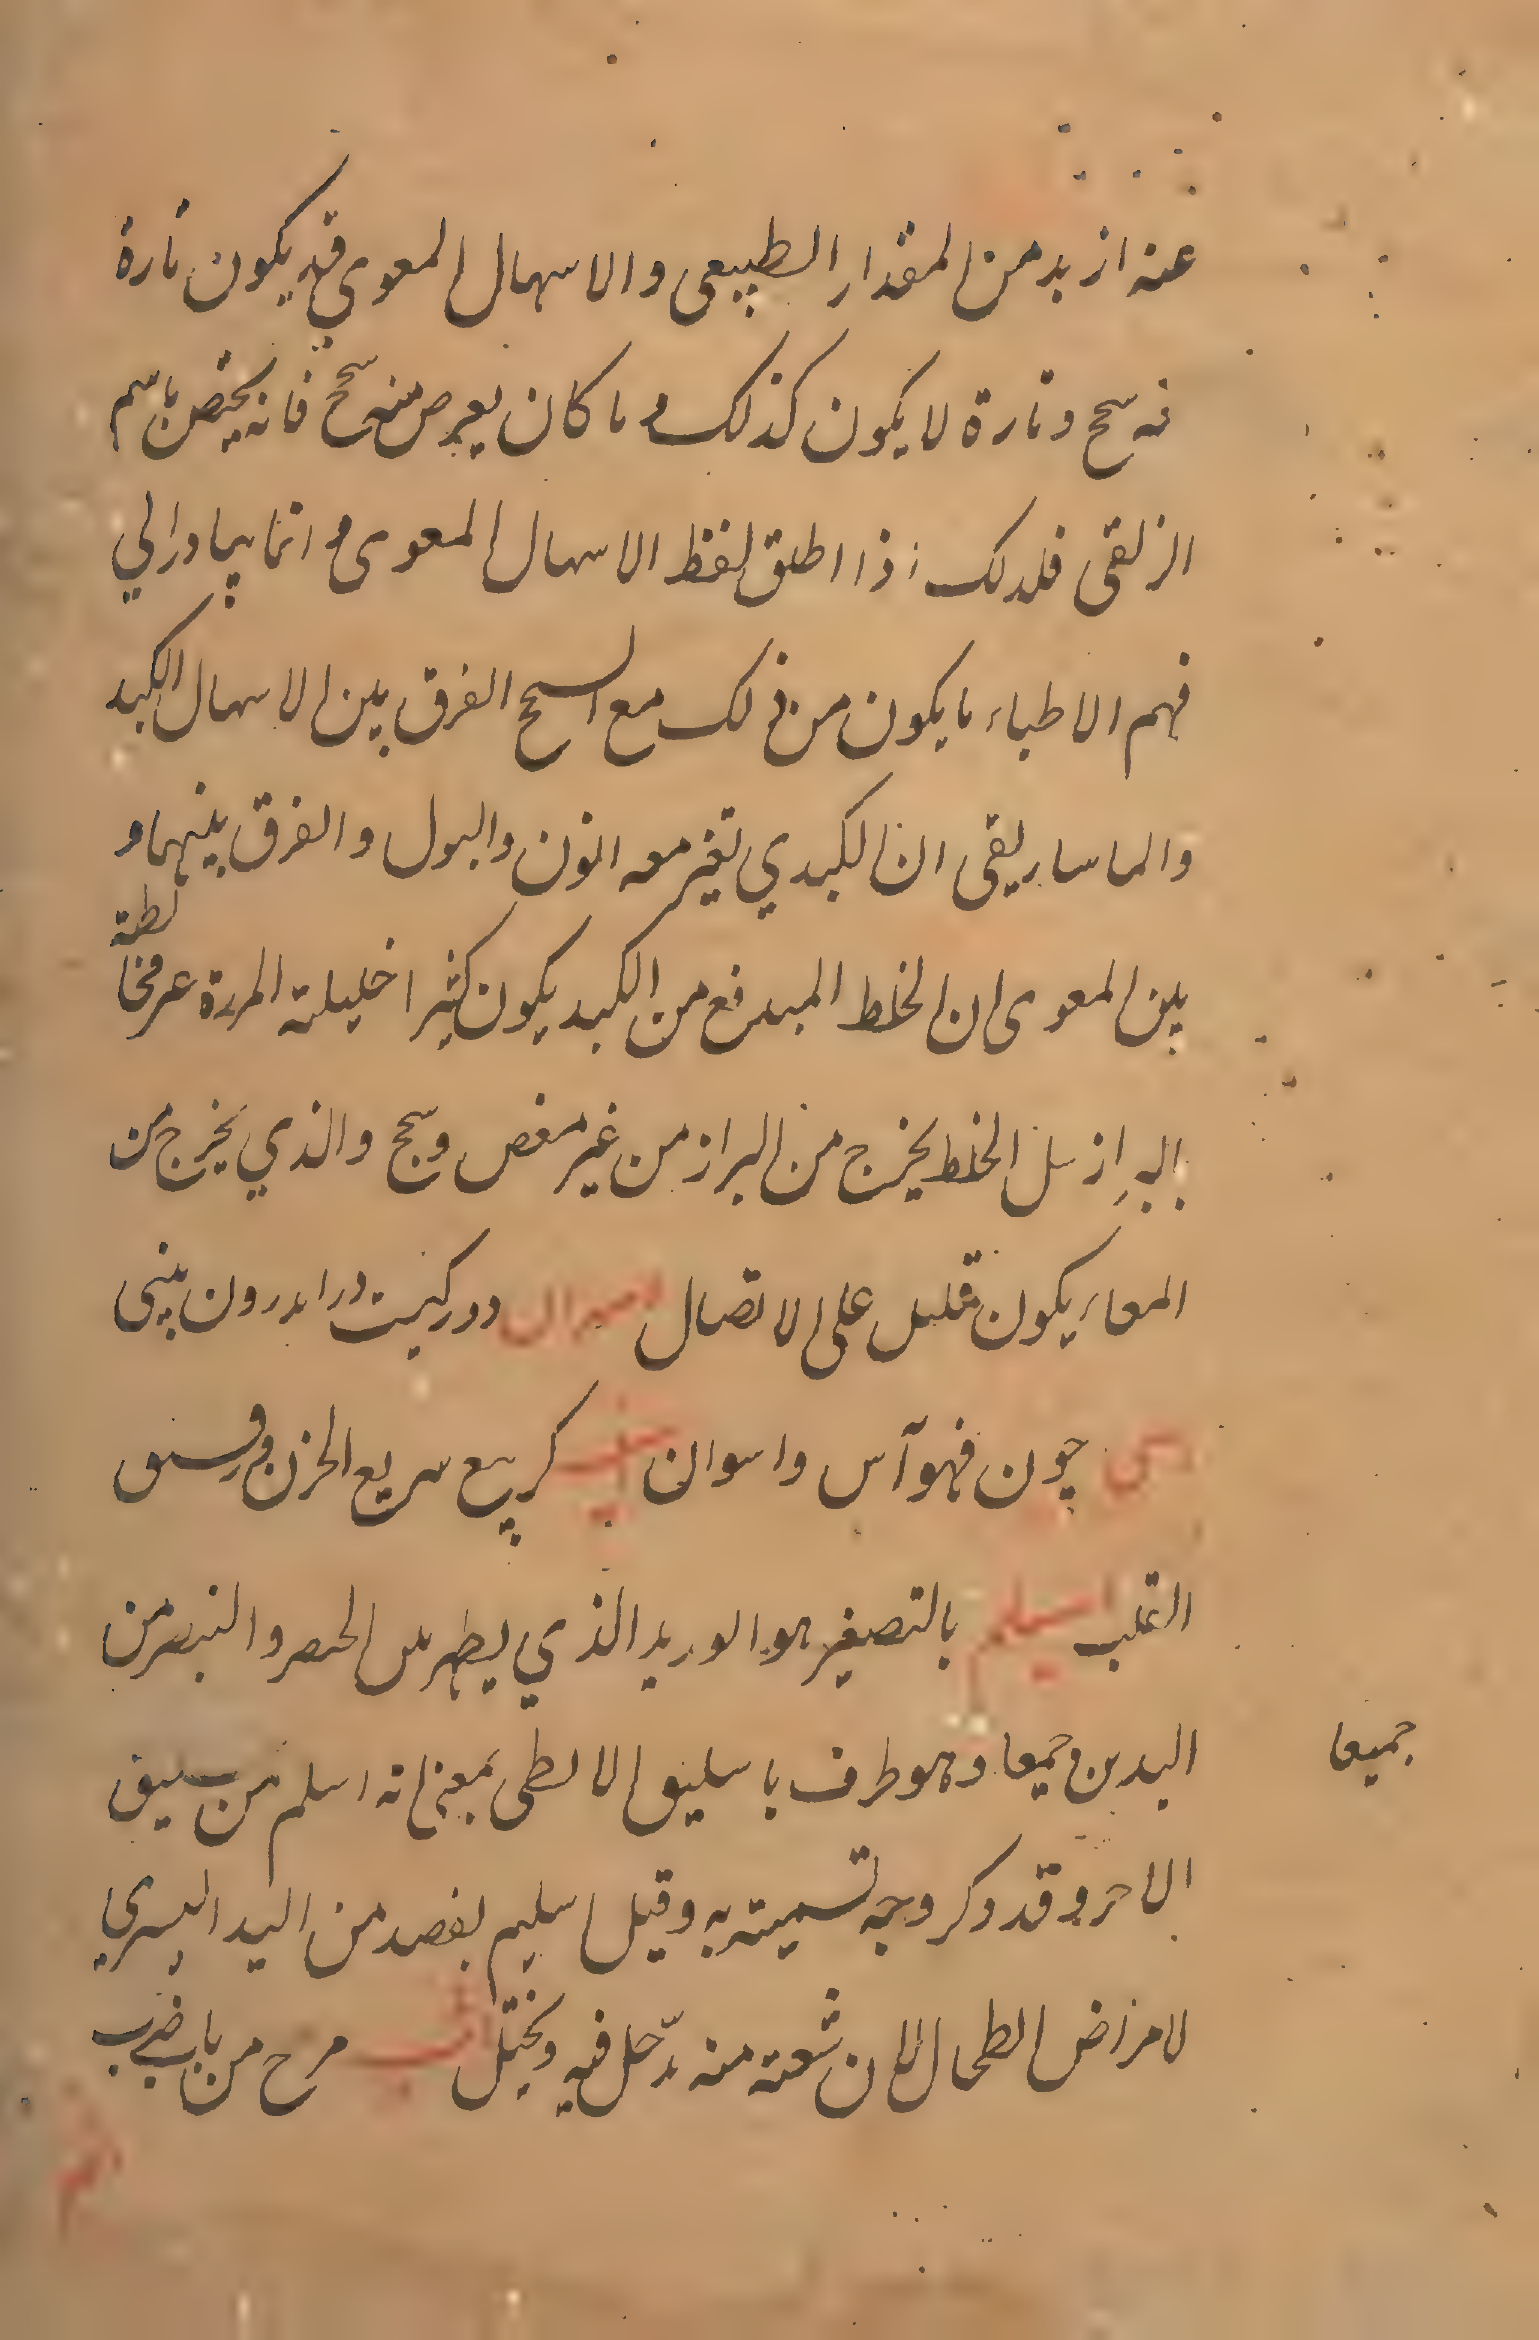 عنه ازيد من المقدار الطبيعى والاسهال المعوي قد يكون تارة
فه سحج وتارة لا يكون كذلك وما كان يعرض منه سحج فانه يختص باسم
الزلقى فلذلك اذا اطلق لفظ الاسهال المعوى وانما يبادر الي
فهم الاطباء ما يكون من ذلك مع السحج الفرق بين الاسهال الكبد
والماساريقى ان الكبدي تغير معه اللون والبول والفرق بينهما و
بين المعوى ان الخلط المندفع من الكبد يكون كثيرا المرة مخالطة
الخلط يخرج من البراز من غير مغص وسحج والذي يخرج من
المعاء يكون قليل على الاتصال اسهران دو ركيست در اندرون بينى
اسى چون فهو آس واسوان اسيف كربيع سريع الحزن ورقيق
القلب اسيلم بالتصغير هو الوريد الذي يظهر بين الخنصر والبنصر من
اليدين جميعا وهو طرف باسليق الابطى بمعنى انه اسلم من باسليق
جميعا
الاخر وقد ذكر وجه تسميته به وقيل اسليم يفصد من اليد اليسري
لامراض الطحال لان شعبة منه تدخل فيه مرح من باب ضرب